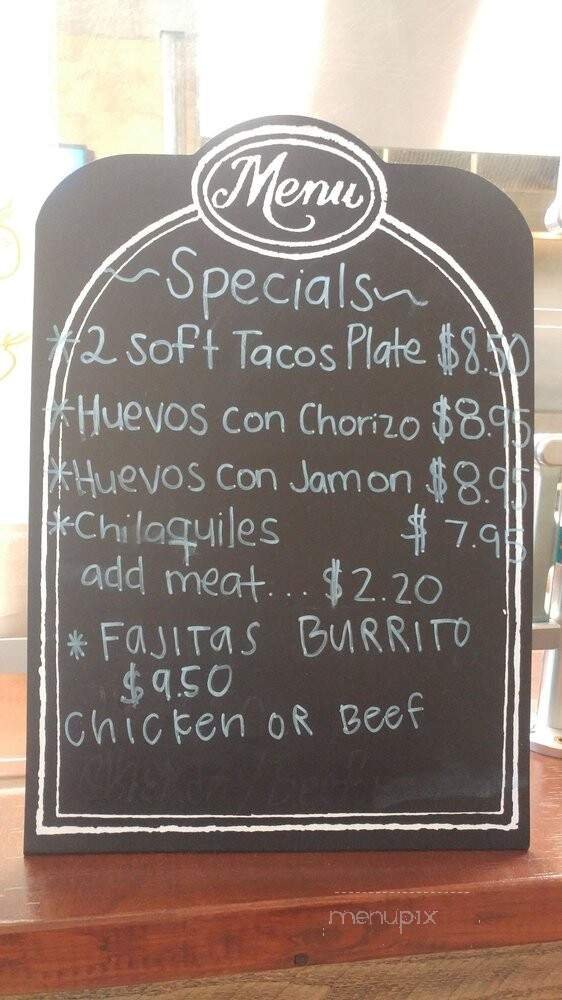 Menu
~Specials~
*2 soft Tacos Plate $8.50
*Huevos con Chorizo $8.95
*Huevos con Jamon $8.95
*Chilaquiles $7.95
add meat... $2.20
*FAJITAS BURRITO
$9.50
Chicken OR Beef
menupix